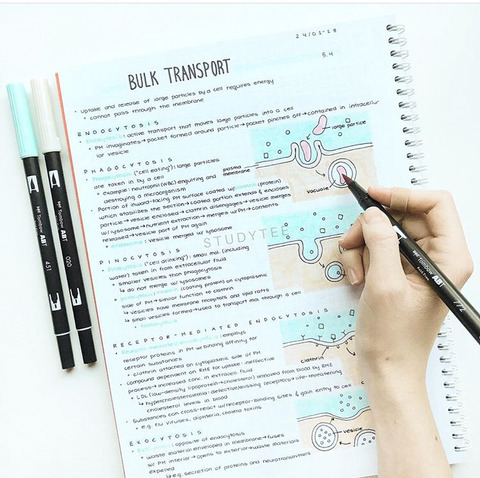 24/01-18
5.4
BULK TRANSPORT
• uptake and release of large particles by a cell requires energy
• cannot pass through the membrane
ENDOCYTOSIS
active transport that moves large particles into a cell
• PM invaginates → pocket formed around particle → pocket pinches off → contained in intracellular vesicle
large particle
PHAGOCYTOSIS
("cell eating"): large particles
are taken in by a cell
plasma
membrane
• example: neutrophil (WBC) engulfing and
destroying a microorganism
• Portion of inward-facing PM surface coated w/ (protein)
which stabilizes the portion → coated portion extends & encloses
particle → vesicle enclosed → clathrin disengages → vesicle merges
w/lysosome → nutrient extraction → merges w/PM → contents
released → vesicle part of PM again
vacuole
: vesicle merged w/lysosome
STUDYTEE
PINOCYTOSIS
("cell drinking"): small mol (including
water) taken in from extracellular fluid
• smaller vesicles than phagocytosis
do not merge w/ lysosome
(coating protein) on cytoplasmic
side of PM → similar function to clathrin
vesicles have membrane receptors and lipid rafts
small vesicles formed → used to transport mol through a cell
RECEPTOR-MEDIATED ENDOCYTOSIS
employs
receptor proteins in PM w/ binding affinity for
certain substances
• clathrin attached on cytoplasmic side of PM
• compound dependent on RME for uptake: ineffective
process → increased conc in extracell fluid
clathrin
• LDL (low-density lipoprotein → cholesterol) removed from blood by RME
cholesterol levels in blood
• Substances can cross-react w/receptor-binding sites & gain entry to cell
e.g. flu viruses, diphtheria, cholera toxins
EXOCYTOSIS
: opposite of endocytosis
• waste material enveloped in membrane → fuses
w/ PM interior → opens to exterior → waste materials
expelled
e.g. secretion of proteins and neurotransmitters
vesicle
Tombow ABT
451
Tombow ABT
020
Tombow ABT
772